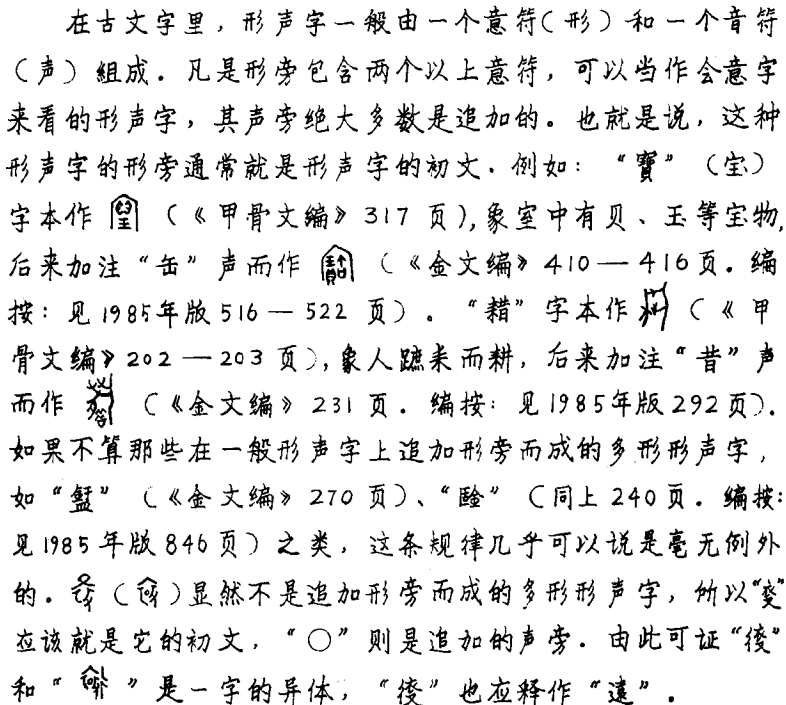 在古文字里，形声字一般由一个意符（形）和一个音符
（声）組成。凡是形旁包含两个以上意符，可以当作会意字
来看的形声字，其声旁绝大多数是追加的。也就是说，这种
形声字的形旁通常就是形声字的初文。例如：“寶”（宝）
字本作（《甲骨文编》317页），象室中有贝、玉等宝物，
后来加注“缶”声而作（《金文编》410—416页。编
按：见1985年版516—522页）。“耤”字本作（《甲
骨文编》202—203页），象人蹠耒而耕，后来加注“昔”声
而作（《金文编》231页。编按：见1985年版292页）。
如果不算那些在一般形声字上追加形旁而成的多形形声字，
如“”（《金文编》270页）、“”（同上240页。编按：
见1985年版846页）之类，这条规律几乎可以说是毫无例外
的。（）显然不是追加形旁而成的多形形声字，所以“”
应该就是它的初文，“〇”则是追加的声旁。由此可证“”
和“”是一字的异体，“”也应释作“遠”。